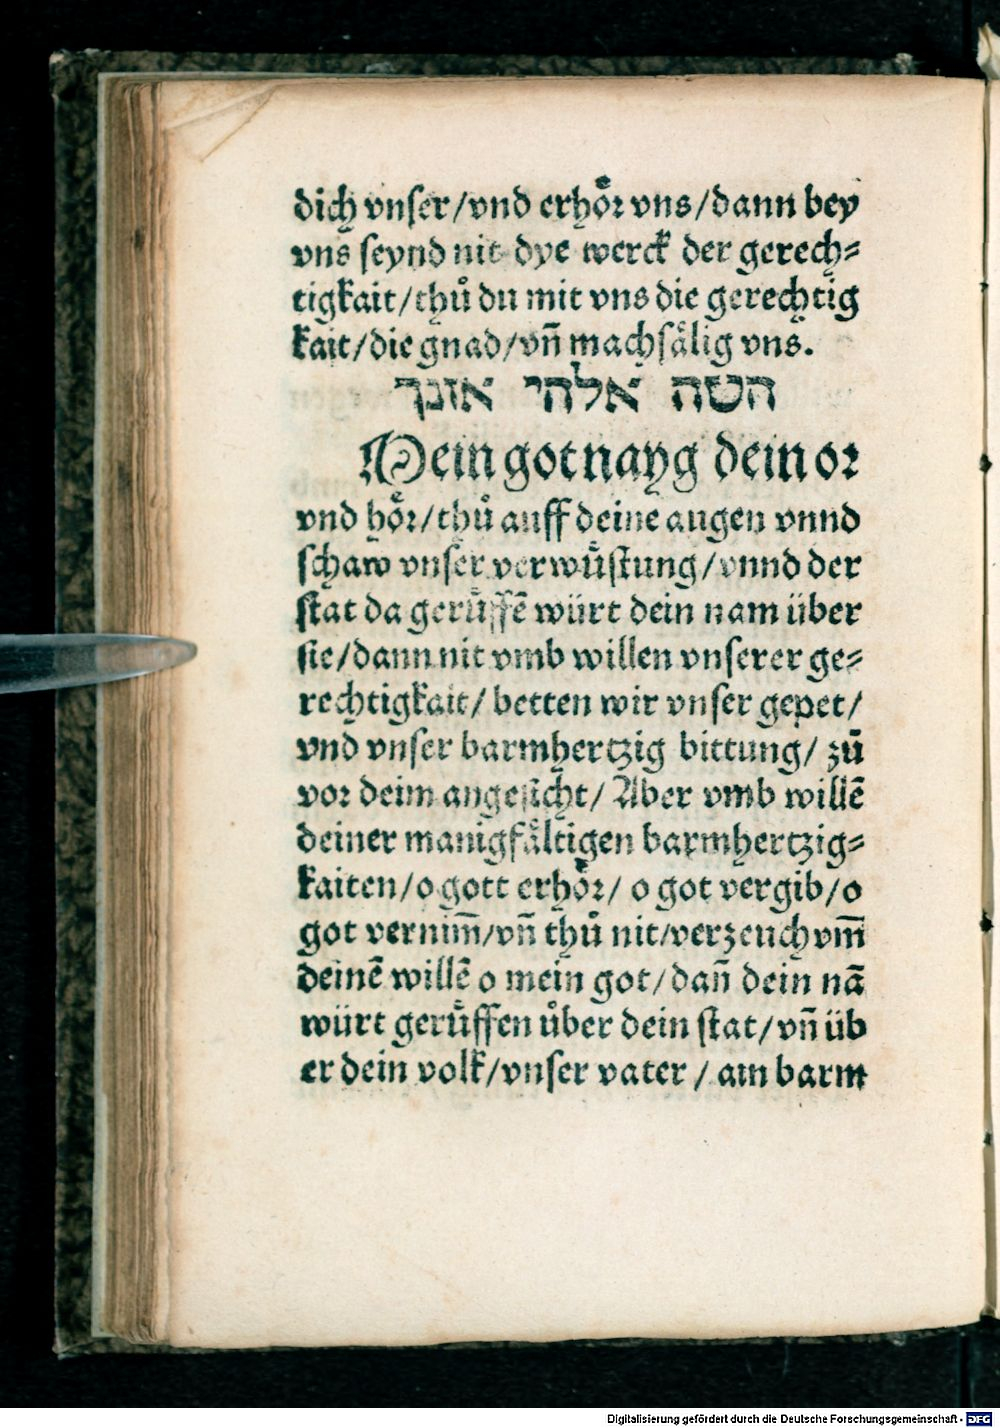 dich vnser/vnd erhoͤr vns/dann bey
vns seynd nit dye werck der gerech⸗
tigkait/thuͦ du mit vns die gerechtig
kait/die gnad/vñ mach saͤlig vns.
הטה אלהי אזנך
Mein got nayg dein or
vnd hoͤr/thuͦ auff deine augen vnnd
schaw vnser verwuͤstung/vnnd der
stat da geruͤffē würt dein nam über
sie/dann nit vmb willen vnserer ge⸗
rechtigkait/ betten wir vnser gepet/
vnd vnser barmhertzig bittung/ zuͦ
vor deim angesicht/ Aber vmb willē
deiner manigfaͤltigen barmhertzig⸗
kaiten/o gott erhoͤr/ o got vergib/o
got vernim̄/vñ thuͦ nit/verzeuch vm̄
deinē willē o mein got/dañ dein nā
würt geruͤffen uͤber dein stat/vñ üb
er dein volk/vnser vater / am barm
Digitalisierung gefördert durch die Deutsche Forschungsgemeinschaft - DFG